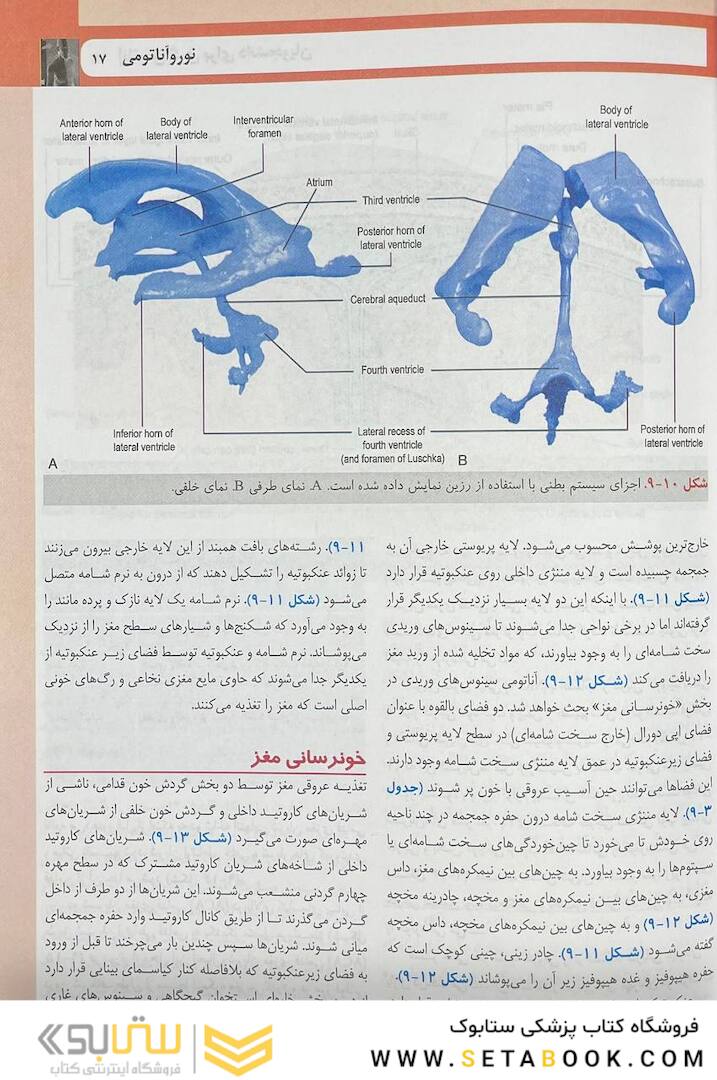 نوروآناتومی ۱۷
Anterior horn of
lateral ventricle
Body of
lateral ventricle
Interventricular
foramen
Atrium
Third ventricle
Posterior horn of
lateral ventricle
Cerebral aqueduct
Fourth ventricle
Inferior horn of
lateral ventricle
Lateral recess of
fourth ventricle
(and foramen of Luschka)
Body of
lateral ventricle
Posterior horn of
lateral ventricle
A
B
شکل ۱۰-۹. اجزای سیستم بطنی با استفاده از رزین نمایش داده شده است. A. نمای طرفی B. نمای خلفی.
خارج‌ترین پوشش محسوب می‌شود. لایه پریوستی خارجی آن به
جمجمه چسبیده است و لایه مننژی داخلی روی عنکبوتیه قرار دارد
(شکل ۱۱-۹). با اینکه این دو لایه بسیار نزدیک یکدیگر قرار
گرفته‌اند اما در برخی نواحی جدا می‌شوند تا سینوس‌های وریدی
سخت شامه‌ای را به وجود بیاورند، که مواد تخلیه شده از ورید مغز
را دریافت می‌کند (شکل ۱۲-۹). آناتومی سینوس‌های وریدی در
بخش «خونرسانی مغز» بحث خواهد شد. دو فضای بالقوه با عنوان
فضای اپی دورال (خارج سخت شامه‌ای) در سطح لایه پریوستی و
فضای زیرعنکبوتیه در عمق لایه مننژی سخت شامه وجود دارند.
این فضاها می‌توانند حین آسیب عروقی با خون پر شوند (جدول
۳-۹). لایه مننژی سخت شامه درون حفره جمجمه در چند ناحیه
روی خودش تا می‌خورد تا چین‌خوردگی‌های سخت شامه‌ای یا
سپتوم‌ها را به وجود بیاورد. به چین‌های بین نیمکره‌های مغز، داس
مغزی، به چین‌های بین نیمکره‌های مغز و مخچه، چادرینه مخچه
(شکل ۱۲-۹) و به چین‌های بین نیمکره‌های مخچه، داس مخچه
گفته می‌شود (شکل ۱۱-۹). چادر زینی، چینی کوچک است که
حفره هیپوفیز و غده هیپوفیز زیر آن را می‌پوشاند (شکل ۱۲-۹).
۱۱-۹). رشته‌های بافت همبند از این لایه خارجی بیرون می‌زنند
تا زوائد عنکبوتیه را تشکیل دهند که از درون به نرم شامه متصل
می‌شود (شکل ۱۱-۹). نرم شامه یک لایه نازک و پرده مانند را
به وجود می‌آورد که شکنج‌ها و شیارهای سطح مغز را از نزدیک
می‌پوشاند. نرم شامه و عنکبوتیه توسط فضای زیر عنکبوتیه از
یکدیگر جدا می‌شوند که حاوی مایع مغزی نخاعی و رگ‌های خونی
اصلی است که مغز را تغذیه می‌کنند.
خونرسانی مغز
تغذیه عروقی مغز توسط دو بخش گردش خون قدامی، ناشی از
شریان‌های کاروتید داخلی و گردش خون خلفی از شریان‌های
مهره‌ای صورت می‌گیرد (شکل ۱۳-۹). شریان‌های کاروتید
داخلی از شاخه‌های شریان کاروتید مشترک که در سطح مهره
چهارم گردنی منشعب می‌شوند. این شریان‌ها از دو طرف از داخل
گردن می‌گذرند تا از طریق کانال کاروتید وارد حفره جمجمه‌ای
میانی شوند. شریان‌ها سپس چندین بار می‌چرخند تا قبل از ورود
به فضای زیرعنکبوتیه که بلافاصله کنار کیاسمای بینایی قرار دارد
ستابوک
فروشگاه اینترنتی کتاب
فروشگاه کتاب پزشکی ستابوک
WWW.SETABOOK.COM